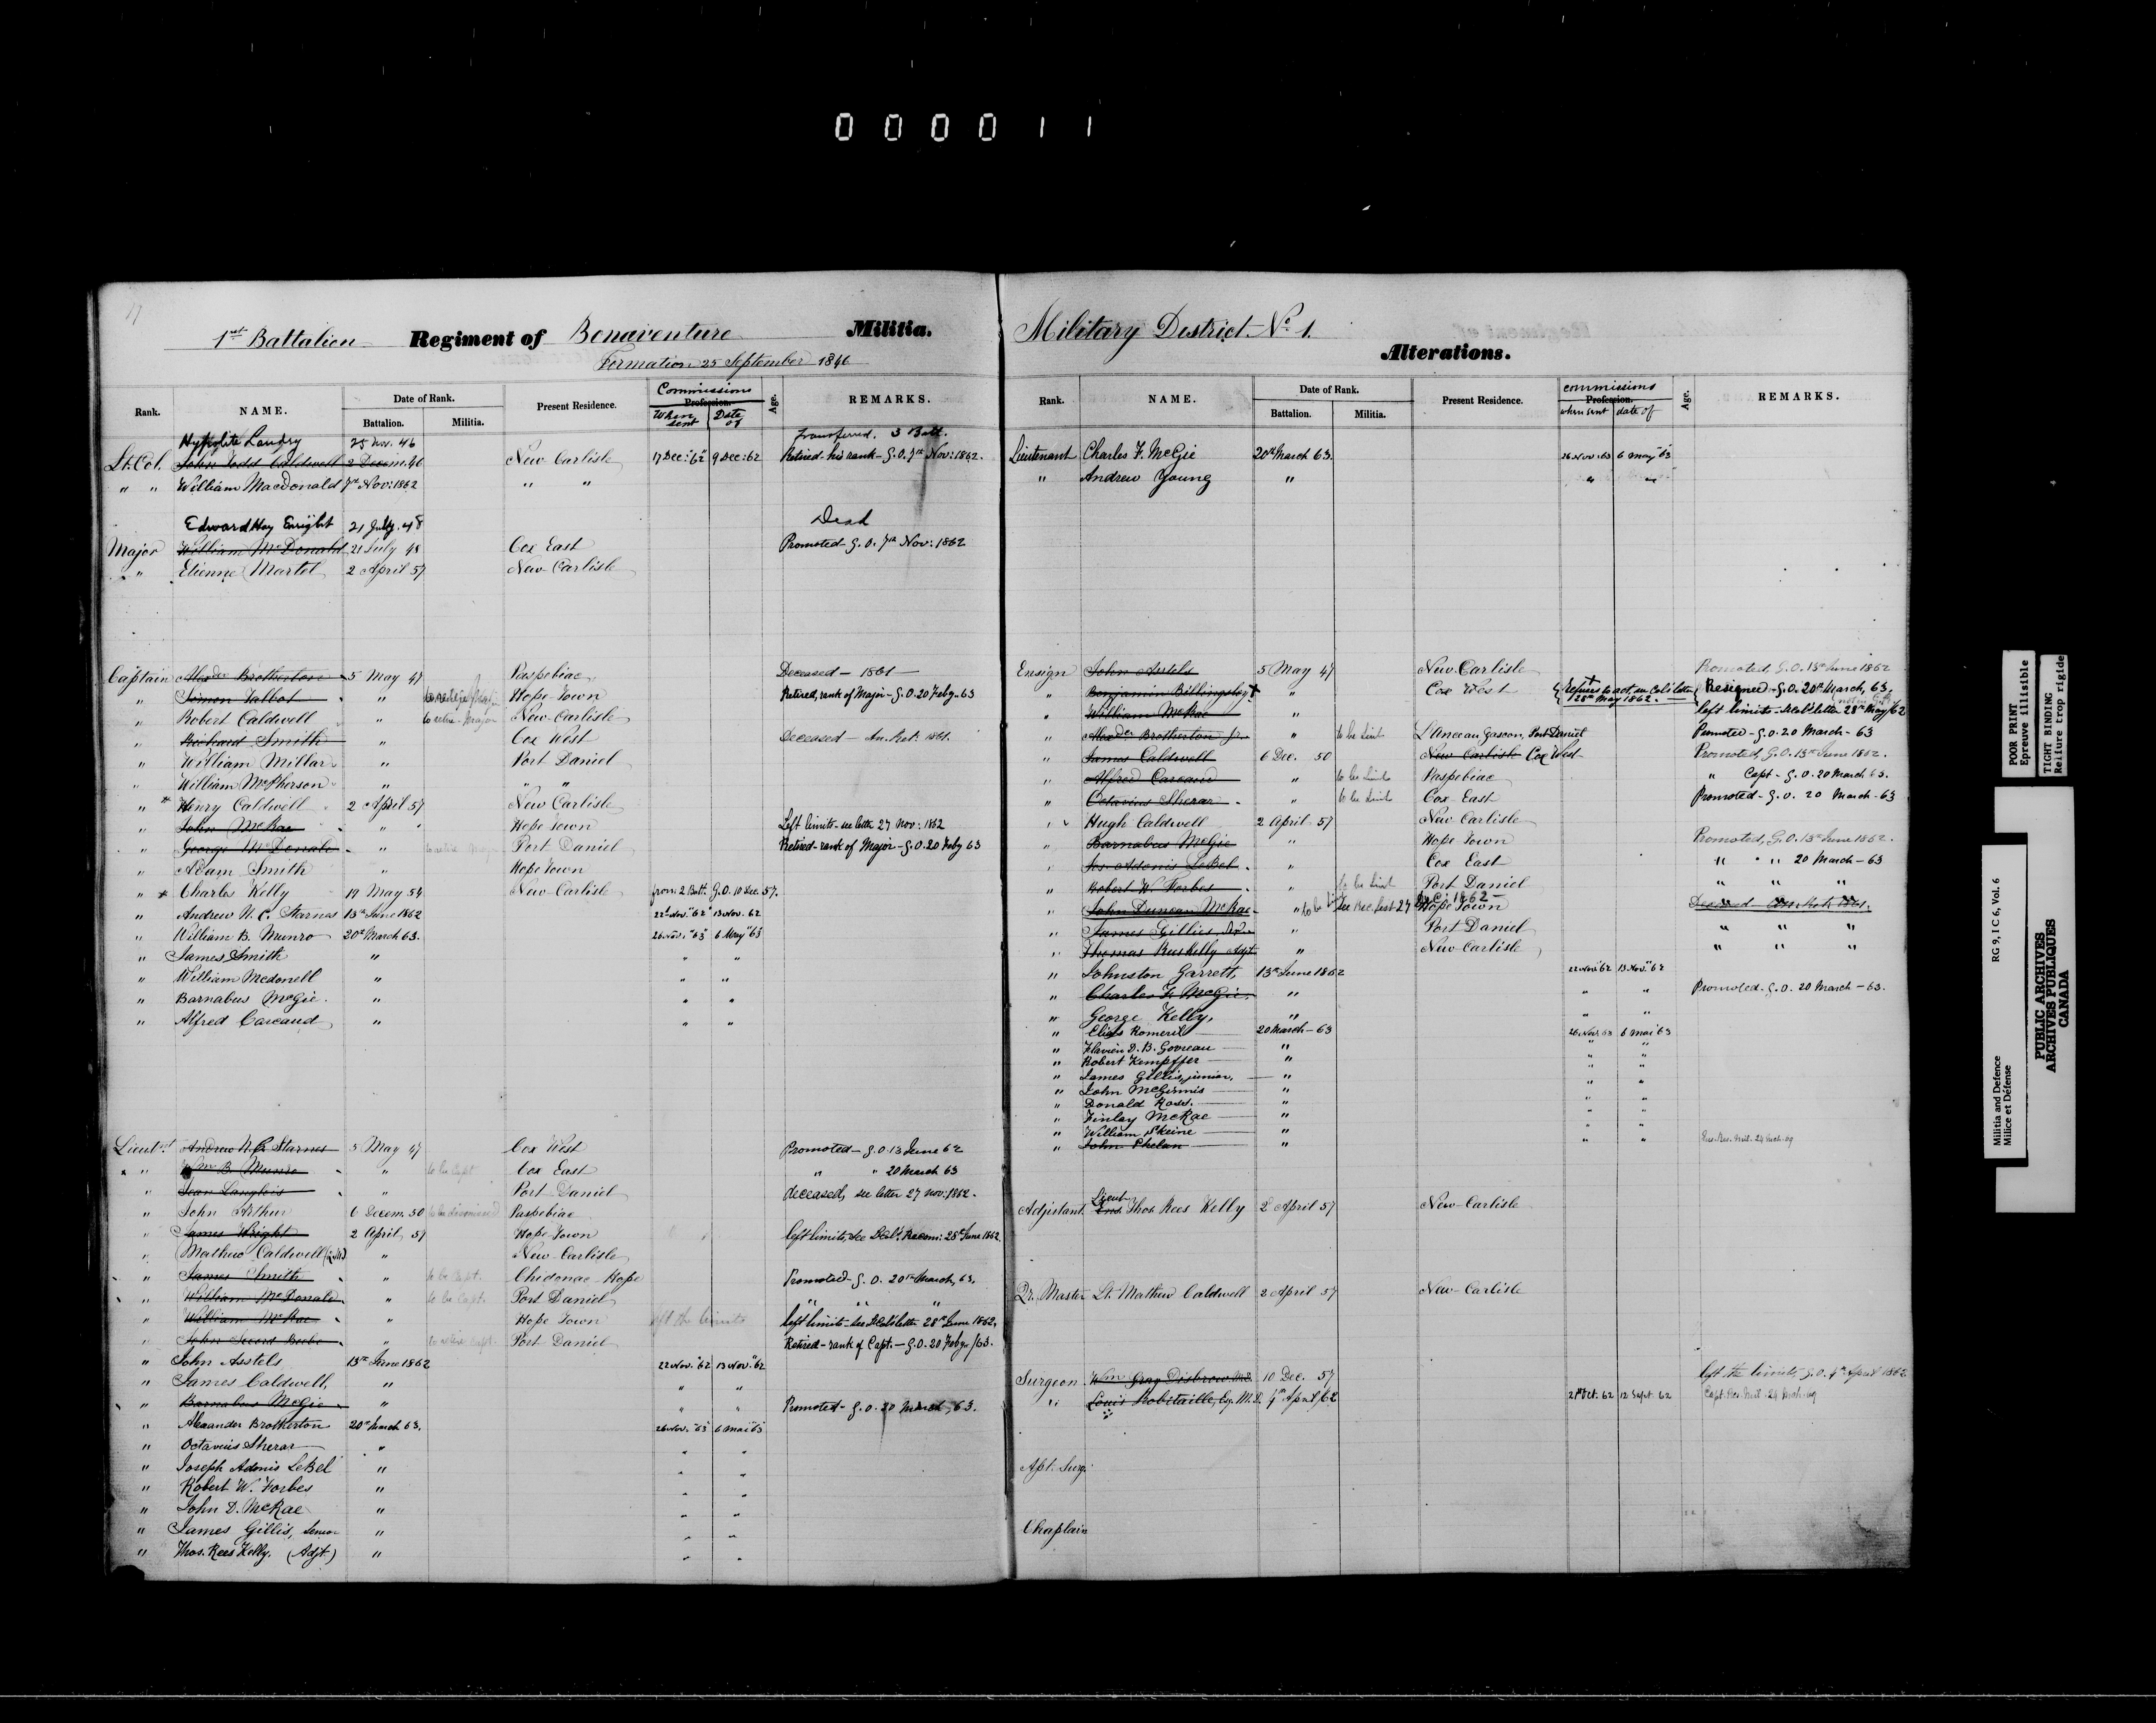 000011
17
1st Battalion Regiment of Bonaventure Militia.
Formation 25 September 1846
Rank. NAME. Date of Rank. Battalion. Militia. Present Residence. Commissions Profession. When sent Date of Age. REMARKS.
Hypolite Landry 25 Nov. 46 transferred. 3 Batt.
Lt. Col. John Todd Caldwell 2 Decem. 46 New Carlisle 17 Dec: "62" 9 Dec: 62 Retired his rank - G.O. 7th Nov: 1862.
" " William MacDonald 7th Nov: 1862 " "
Edward Hay Enright 21 July. 48 Dead
Major William McDonald 21 July 48 Cox East Promoted - G.O. 7th Nov: 1862
" Etienne Martel 2 April 57 New Carlisle
Captain Alexder Brotherton 5 May 47 Paspebiac Deceased - 1861
" Simon Talbot " Hope Town Retired, rank of Major - G.O. 20 Feby - 63
" Robert Caldwell " to retire - Major New Carlisle
" Richard Smith " Cox West Deceased - An. Ret. 1861.
" William Millar " Port Daniel
" William McPherson " " "
" * Henry Caldwell 2 April 57 New Carlisle
" John McRae " Hope Town Left limits - see letter 27 Nov: 1862
" George McDonald " Port Daniel Retired - rank of Major - G.O. 20 Feby 63
" Adam Smith " Hope Town
" * Charles Kelly 19 May 54 New Carlisle from 2 Batt. G.O. 10 Dec. 57.
" Andrew N. C. Starnes 13th June 1862 22d Nov. "62" 13 Nov. 62
" William B. Munro 20th March 63. 26 Nov. "63" 6 May "63
" James Smith " " "
" William Mcdonell " " "
" Barnabus McGie. " " "
" Alfred Carcaud " " "
Lieutnt Andrew N. C. Starnes 5 May 47 Cox West Promoted - G.O. 13 June 62
" Wm B. Munro " to be Capt Cox East " " 20 March 63
" Jean Langlois " Port Daniel deceased, see letter 27 Nov: 1862.
" John Arthur 6 Decem. 50 to be dismissed Paspebiac
" James Wright 2 April 57 Hope Town left limits, see Recom: 28th June 1862.
" Mathew Caldwell (Q.M.) " New Carlisle
" James Smith " to be Capt. Chidonac - Hope Promoted - G.O. 20th March, 63.
" William McDonald " to be Capt. Port Daniel " " "
" William McRae " Hope Town left the limits left limits - see letter 28th June 1862.
" John Secord Beebe " to retire Capt. Port Daniel Retired - rank of Capt. - G.O. 20 Feby./63.
" John Asstels 13th June 1862 22 Nov. "62 13 Nov. "62
" James Caldwell, " " "
" Barnabus McGie " " " Promoted - G.O. 20 March, 63.
" Alexander Brotherton 20th March 63. 26 Nov. "63 6 Mai "63
" Octavius Sherar " " "
" Joseph Adonis LeBel " " "
" Robert W. Forbes " " "
" John D. McRae " " "
" James Gillis, Senior " " "
" Thos. Rees Kelly. (Adjt) " " "
Military District No 1.
Alterations.
Rank. NAME. Date of Rank. Battalion. Militia. Present Residence. commissions Profession. when sent date of Age. REMARKS.
Lieutenant Charles F. McGie 20th March 63. 26 Nov. 63 6 May "63
" Andrew Young " " "
Ensign John Astels 5 May 47 New Carlisle Promoted, G.O. 13th June 1862
" Benjamin Billingsley † " Cox West { † Refuses to act, see Col's letter 28th May 1862. } Resigned - G.O. 20th March, 63.
" William McRae " left limits - letter 28th May/62
" Alexder Brotherton Jr. " to be Lieut L'Anceau Gascon, Port Daniel Promoted - G.O. 20 March - 63
" James Caldwell 6 Dec. 50 New Carlisle Cox West Promoted, G.O. 13th June 1862.
" Alfred Carcaud " to be Lieut Paspebiac " Capt - G.O. 20 March 63.
" Octavius Sherar " to be Lieut Cox East Promoted - G.O. 20 March - 63
" Hugh Caldwell 2 April 57 New Carlisle
" Barnabus McGie " Hope Town Promoted, G.O. 13th June 1862.
" Jos. Adonis LeBel " Cox East " " " 20 March - 63
" Robert W. Forbes " to be Lieut Port Daniel " " "
" John Duncan McRae " Hope Town Deceased - An. Ret. 1861.
" James Gillies, " Port Daniel " " "
" Thomas Rees Kelly Adjt " New Carlisle " " "
" Johnston Garrett, 13th June 1862 22 Nov "62 13 Nov. "62
" Charles F. McGie. " " " Promoted - G.O. 20 March - 63.
" George Kelly, " " "
" Elias Romeril 20 March - 63 26 Nov. 63 6 Mai 63
" Flavien D. B. Gomeau " " "
" Robert Kempffer " " "
" James Gillis, junior, " " "
" John McGinnis " " "
" Donald Ross. " " "
" Finlay McRae " " "
" William Skeine " " "
" John Phelan " " "
Adjutant Lieut Ens. Thos. Rees Kelly 2 April 57 New Carlisle
Qr. Master Lt. Mathew Caldwell 2 April 57 New Carlisle
Surgeon Wm Gray Disbrow M.D. 10 Dec. 57 left the limits, G.O. 4th April 1862
" Louis Robitaille, Esq. M.D. 4th April/62 21st Oct. 62 12 Sept. 62
Ast. Surg.
Chaplain
POOR PRINT
Epreuve illisible
TIGHT BINDING
Reliure trop rigide
Militia and Defence
Milice et Défense
RG 9, I C 6, Vol. 6
PUBLIC ARCHIVES
ARCHIVES PUBLIQUES
CANADA